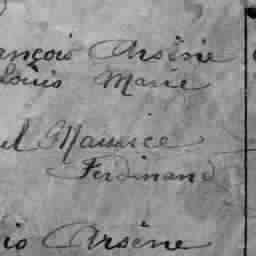 ançois Arsène
Louis Marie
ul Maurice
Ferdinand
is Arsène